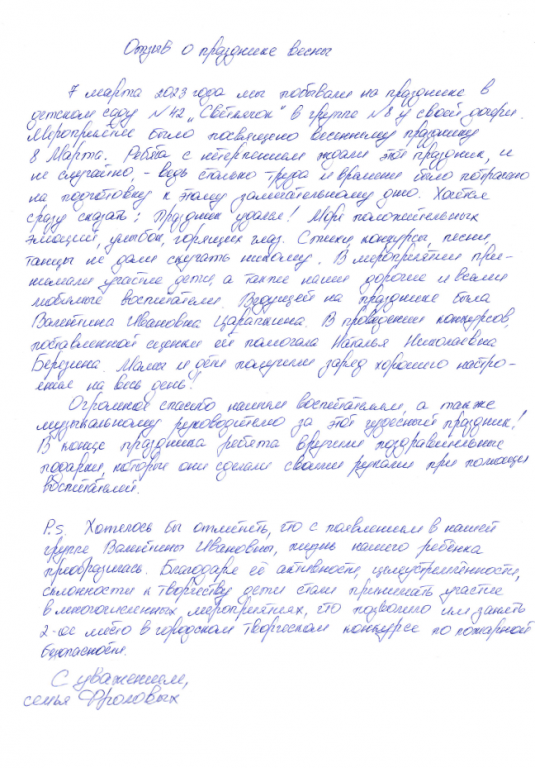 Отзыв о празднике весны
7 марта 2023 года мы побывали на празднике в
детском саду №42 „Светлячок" в группе №8 у своей дочери.
Мероприятие было посвящено весеннему празднику
8 Марта. Ребята с нетерпением ждали этот праздник, и
не случайно, - ведь столько труда и времени было потрачено
на подготовку к этому замечательному дню. Хочется
сразу сказать: праздник удался! Море положительных
эмоций, улыбок, горящих глаз. Стихи, конкурсы, песни,
танцы не дали скучать никому. В мероприятии при-
нимали участие дети, а также наши дорогие и всеми
любимые воспитатели. Ведущей на празднике была
Валентина Ивановна Царапкина. В проведении конкурсов,
поставленной сценки ей помогала Наталья Николаевна
Березина. Мамы и дети получили заряд хорошего настро-
ения на весь день!
Огромное спасибо нашим воспитателям, а также
музыкальному руководителю за этот чудесный праздник!
В конце праздника ребята вручили поздравительные
подарки, которые они сделали своими руками при помощи
воспитателей.
P.S. Хотелось бы отметить, что с появлением в нашей
группе Валентины Ивановны, жизнь нашего ребёнка
преобразилась. Благодаря её активности, целеустремлённости,
склонности к творчеству дети стали принимать участие
в многочисленных мероприятиях, что позволило им занять
2-ое место в городском творческом конкурсе по пожарной
безопасности.
С уважением,
семья Фроловых